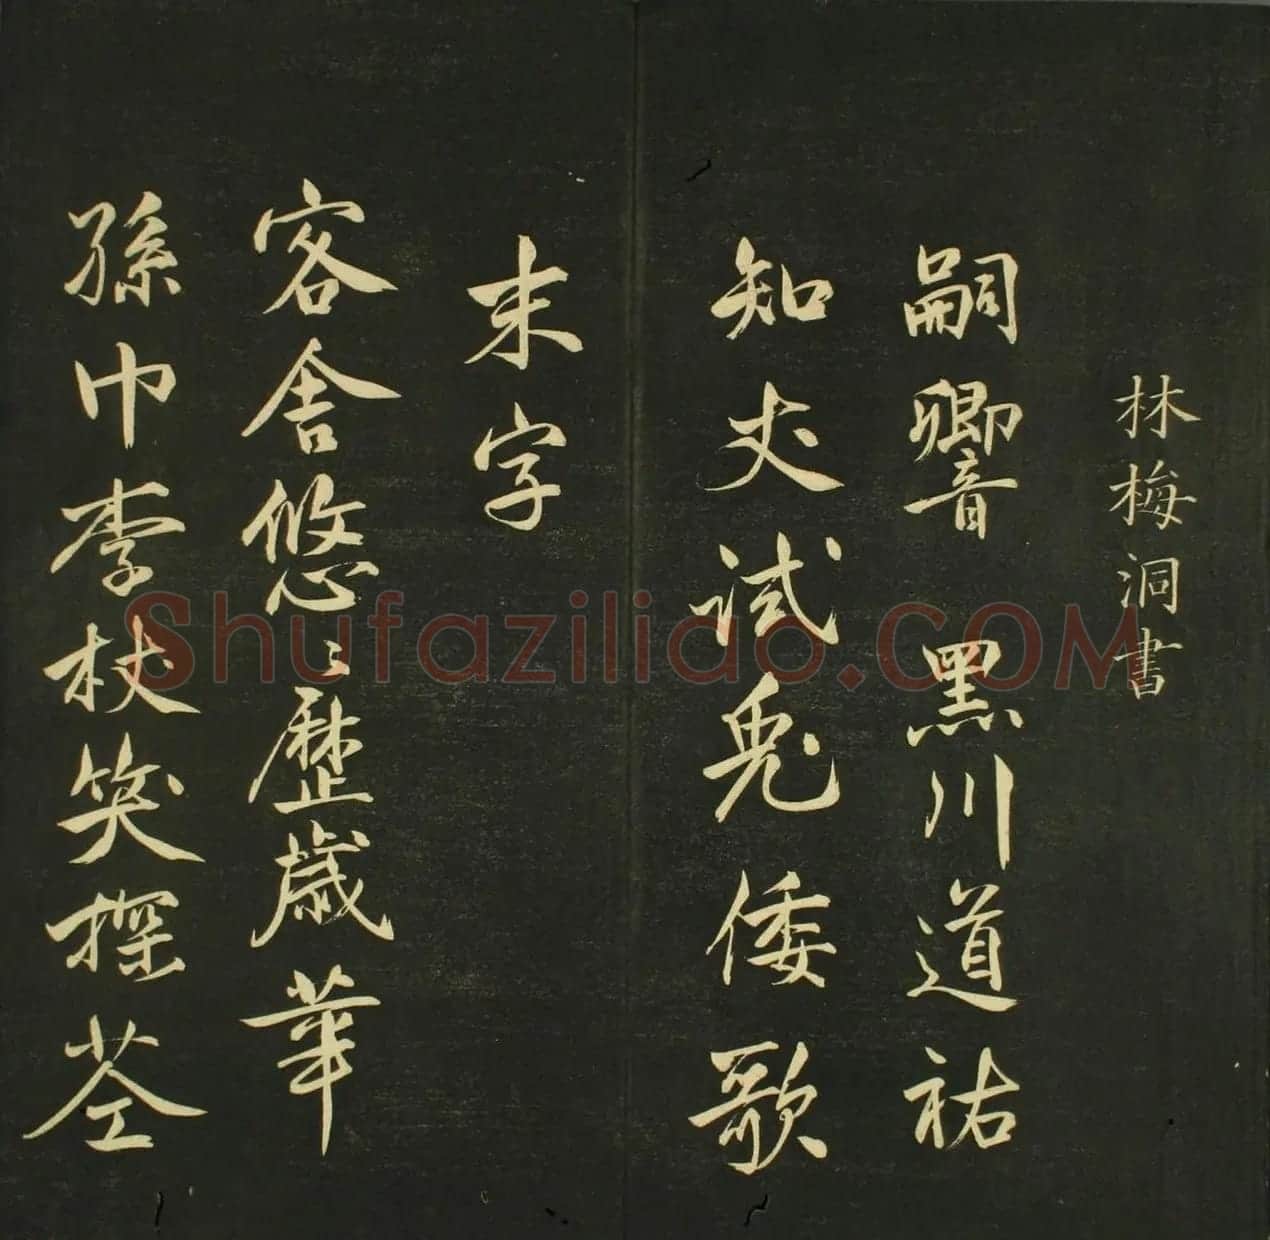 林梅洞書
嗣響 黑川道祐
知丈試兎倭歌
末字
客舍悠〻歷歲華
孫巾李杖笑探荃
Shufaziliao.COM